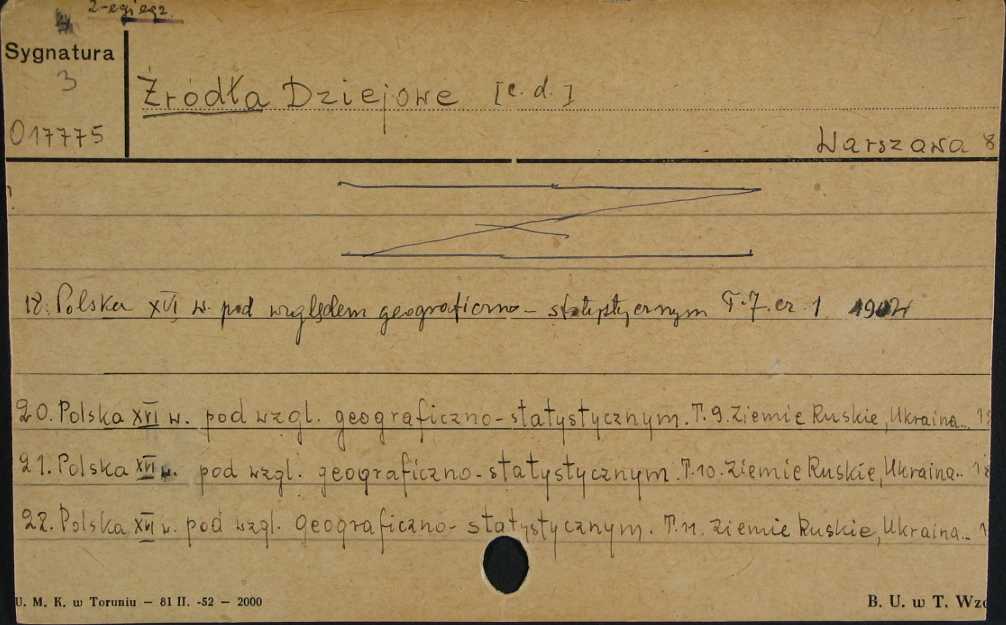 2-egiego
Sygnatura
3
Źródła Dziejowe [c. d.]
017775
Warszawa 8
18. Polska XVI w. pod względem geograficzno-statystycznym T. 7. cz 1
20. Polska XVI w. pod wzgl. geograficzno-statystycznym. T. 9. Ziemie Ruskie, Ukraina..
21. Polska XVI w. pod wzgl. geograficzno-statystycznym. T. 10. Ziemie Ruskie, Ukraina..
22. Polska XVI w. pod wzgl. geograficzno-statystycznym. T. 11. Ziemie Ruskie, Ukraina..
U. M. K. w Toruniu – 81 II. -52 – 2000
B. U. w T. Wzo